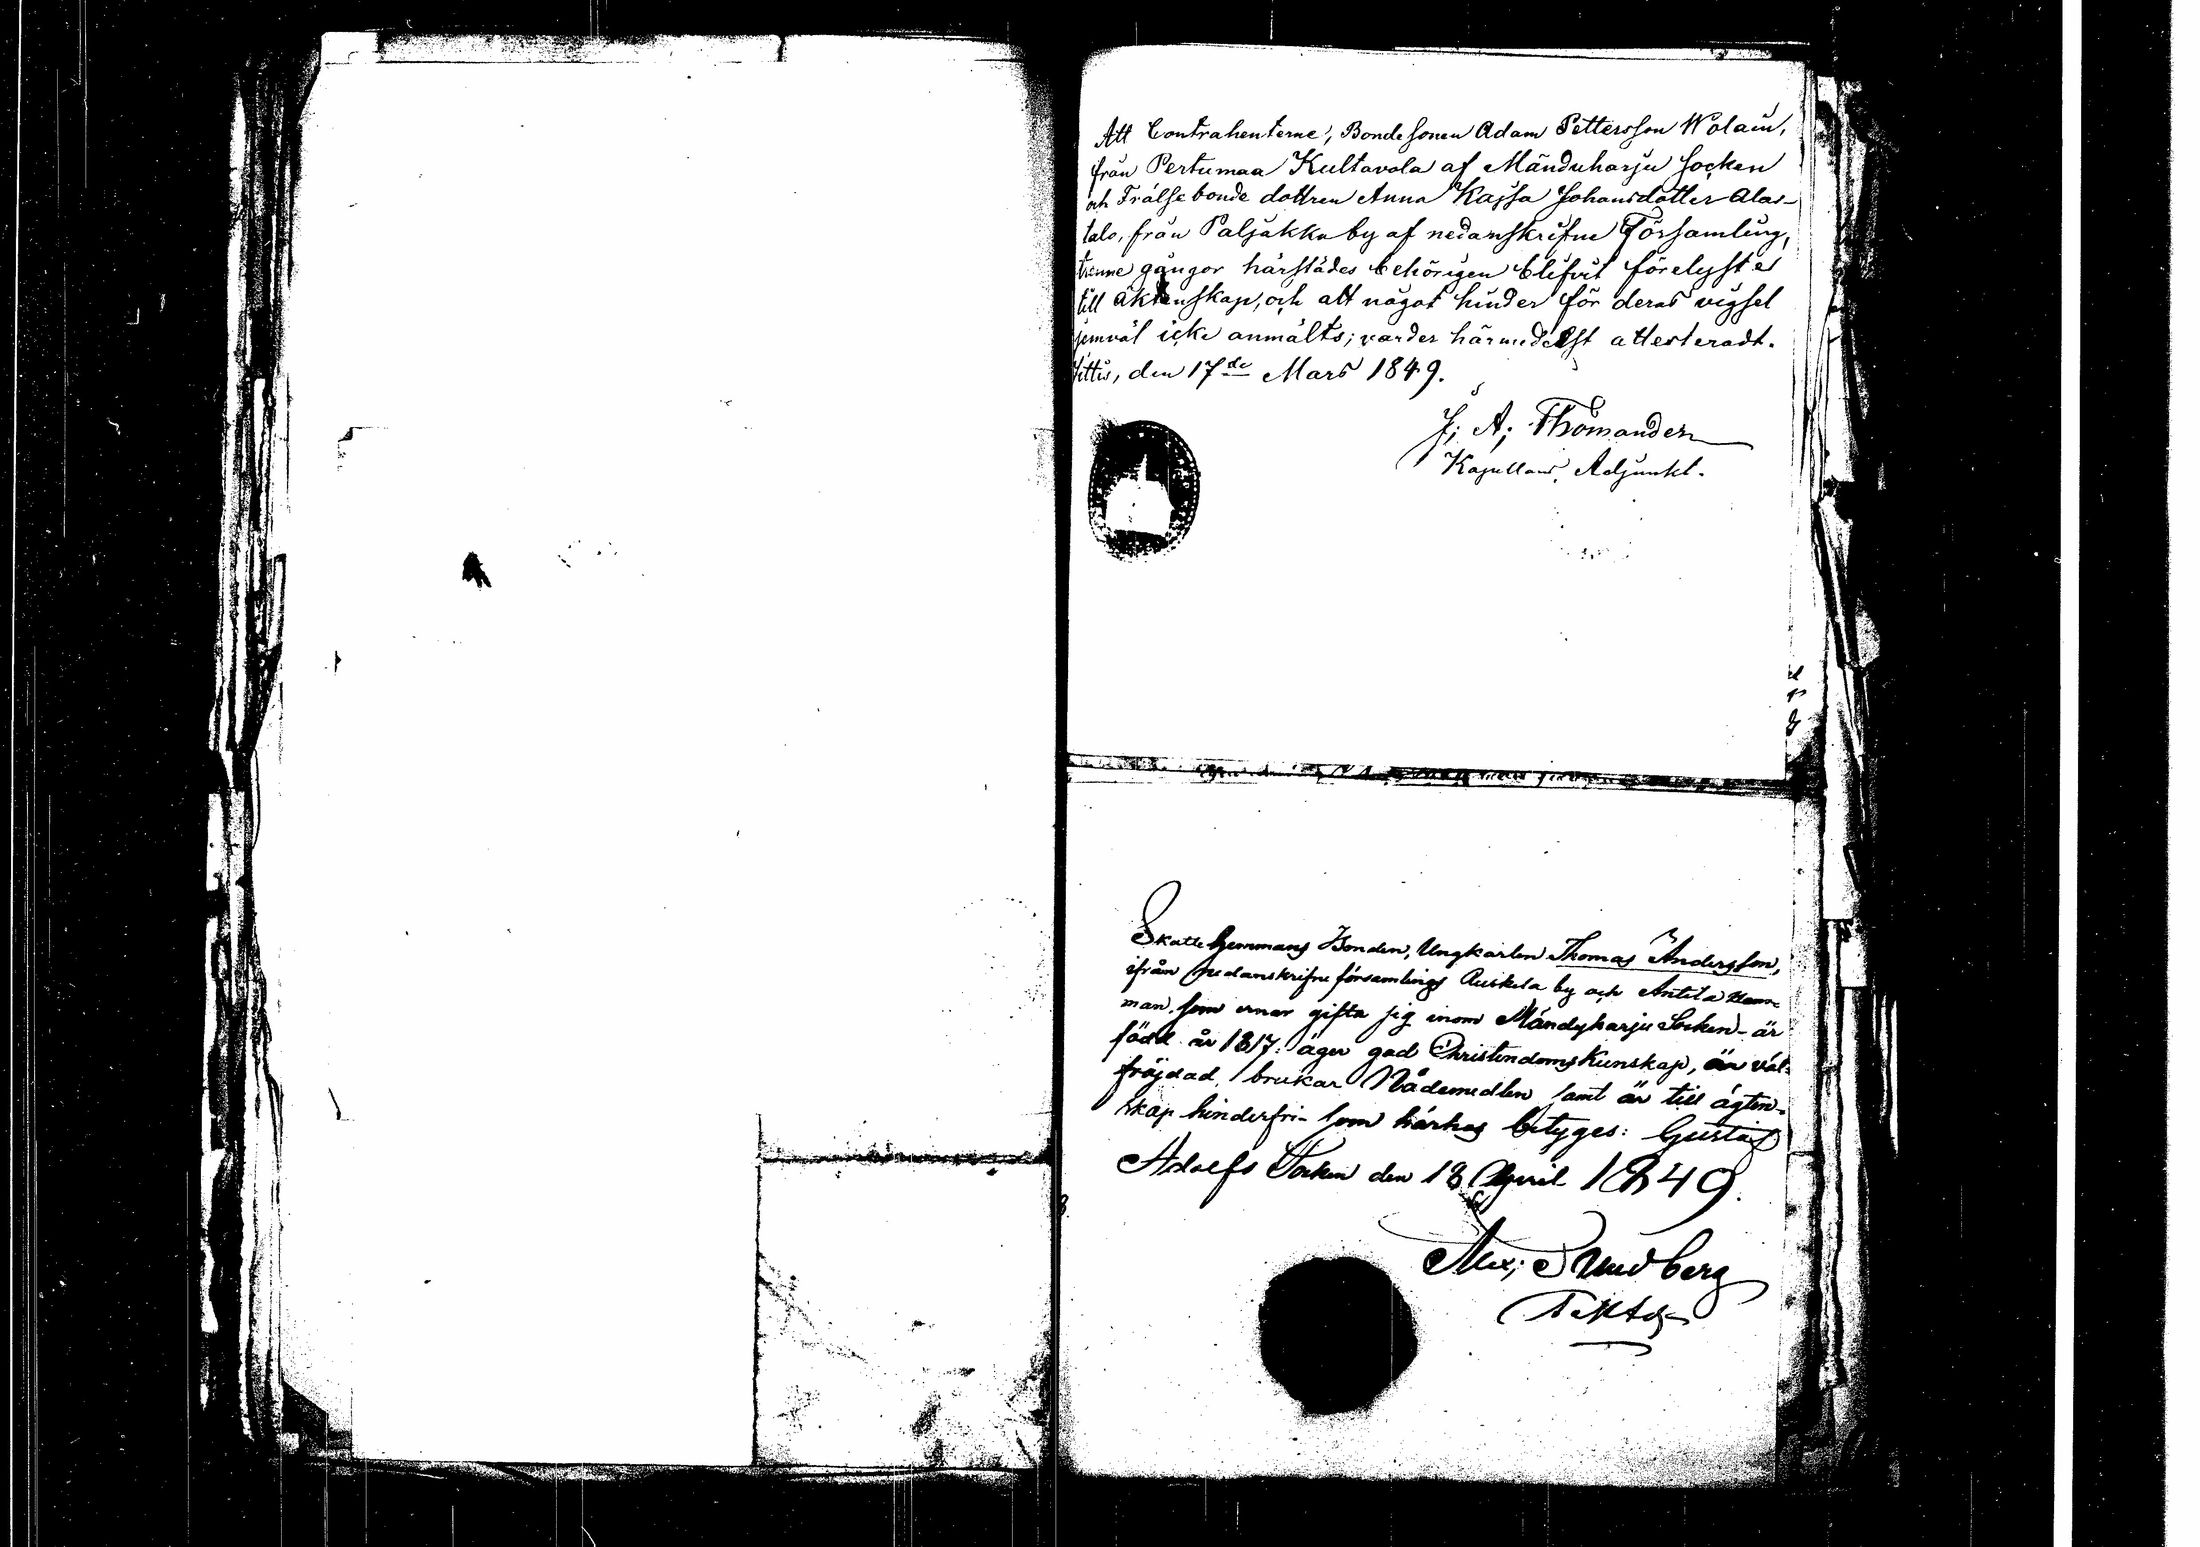 Att Contrahenterne, Bondesonen Adam Pettersson Wolain,
från Pertumaa Kultavola af Mänduharju socken
och Frälsebonde dottren Anna Kajsa Johansdotter Alas-
talo, från Paljakka by af nedanskrifne Församling,
trenne gångor härstädes behörigen blifvit förelyste
till äktenskap, och att något hinder för deras vigsel
jemväl icke anmälts; varder härmedelst attesteradt.
Iittis, den 17de Mars 1849.
J; A; Thomander
Kapellans Adjunkt.
Skattehemmans Bonden, Ungkarlen Thomas Andersson,
ifrån nedanskrifne församlings Auskela by och Antila Hem-
man, som ernar gifta sig inom Mändyharju Socken - är
född år 1817: äger god Christendoms Kunskap, är väl-
fräjdad, brukar Nådemedlen samt är till ägten-
skap hinderfri - som härhos betyges: Gustaf
Adolfs Socken den 18 April 1849.
Alex; Sundberg